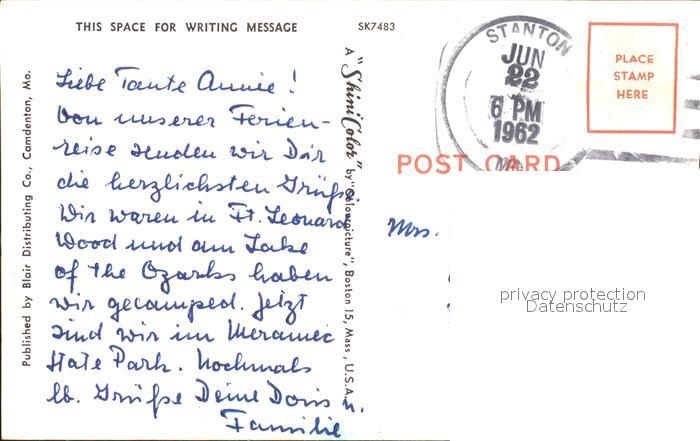 THIS SPACE FOR WRITING MESSAGE
SK7483
Liebe Tante Annie!
Von unserer Ferien-
reise senden wir Dir
die herzlichsten Grüße
Wir waren in Ft. Leonard
Wood und am Lake
of the Ozarks haben
wir gecamped. Jetzt
sind wir im Meramec
State Park. Nochmals
lb. Grüße Deine Doris u.
Familie
Published by Blair Distributing Co., Camdenton, Mo.
A "Shini-Color" by "Colourpicture", Boston 15, Mass., U.S.A.
STANTON
JUN
22
6 PM
1962
PLACE
STAMP
HERE
POST CARD
Mrs.
privacy protection
Datenschutz